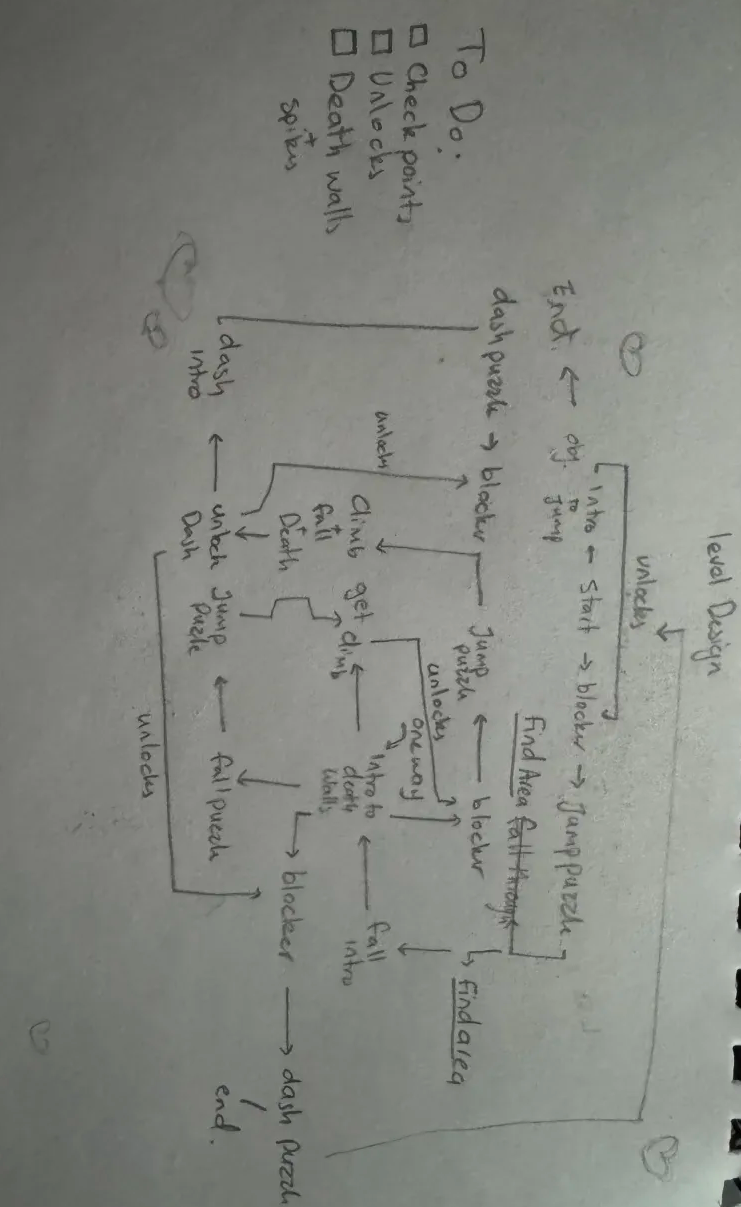 level Design
unlocks
End. ← obj. Intro to Jump ← Start → blocker → Jump puzzle
find Area fall through
dash puzzle → blocker
Jump puzzle ← blocker
find area
unlocks
one way
unlocks
climb + fall Death
get climb ← Intro to death walls ← fall intro
dash intro ← unlock Dash
Jump puzzle ← fall puzzle
blocker → dash puzzle / end.
unlocks
To Do:
□ Check points
□ Unlocks
□ Death walls
+ spikes